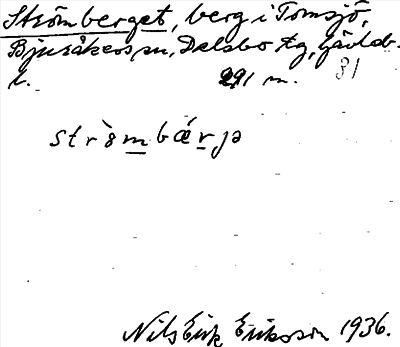 Strömberget, berg i Tomsjö,
Bjuråkers sn, Delsbo tg, Gävleb.
l. 291 m. 31
strömbärjə
Nils Erik Eriksson 1936.